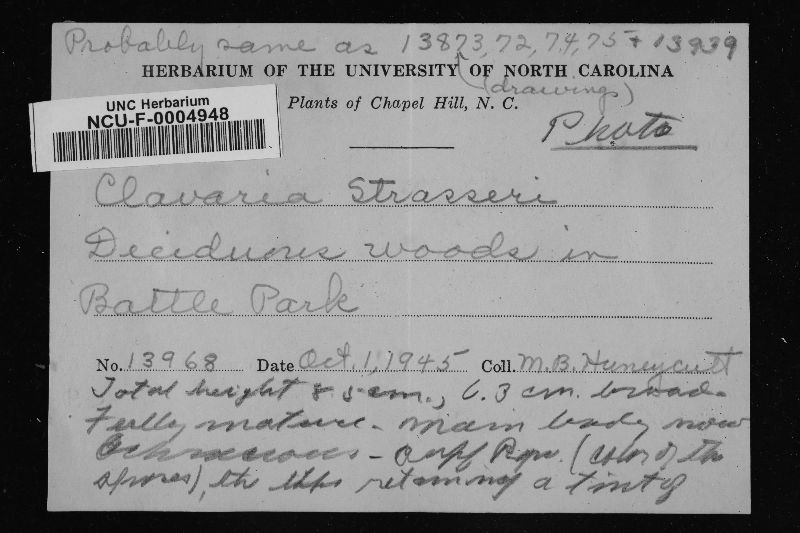 Probably same as 13873, 72, 74, 75 + 13939
HERBARIUM OF THE UNIVERSITY OF NORTH CAROLINA
(drawings)
UNC Herbarium
NCU-F-0004948
Plants of Chapel Hill, N. C.
Photo
Clavaria Strasseri
Deciduous woods in
Battle Park
No. 13968 Date Oct. 1, 1945 Coll. M.B. Huneycutt
Total height 8.5 cm., 6.3 cm. broad.
Fully mature - main body now
Ochraceous - (color of the
spores), the tips retaining a tint of